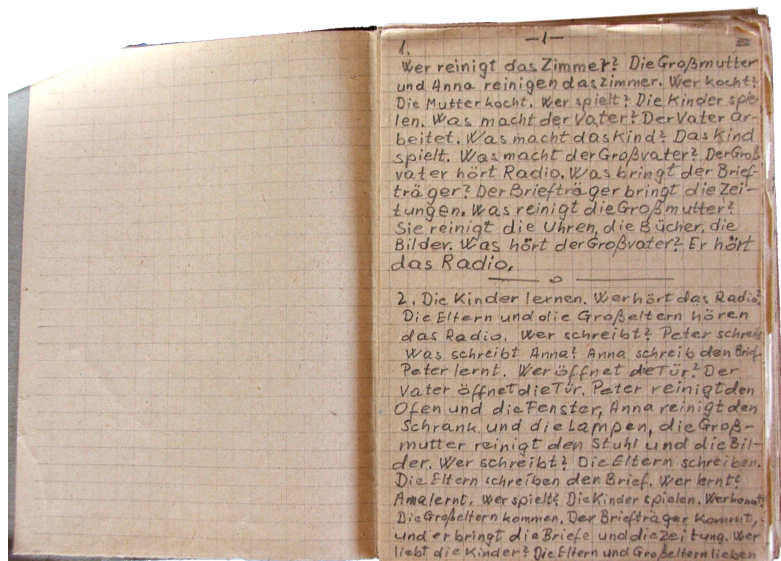 —1—
1.
Wer reinigt das Zimmer? Die Großmutter
und Anna reinigen das Zimmer. Wer kocht?
Die Mutter kocht. Wer spielt? Die Kinder spie-
len. Was macht der Vater? Der Vater ar-
beitet. Was macht das Kind? Das Kind
spielt. Was macht der Großvater? Der Groß-
vater hört Radio. Was bringt der Brief-
träger? Der Briefträger bringt die Zei-
tungen. Was reinigt die Großmutter?
Sie reinigt die Uhren, die Bücher, die
Bilder. Was hört der Großvater? Er hört
das Radio.
2. Die Kinder lernen. Wer hört das Radio?
Die Eltern und die Großeltern hören
das Radio. Wer schreibt? Peter schreibt
Was schreibt Anna? Anna schreib den Brief.
Peter lernt. Wer öffnet die Tür? Der
Vater öffnet die Tür. Peter reinigt den
Ofen und die Fenster, Anna reinigt den
Schrank und die Lampen, die Groß-
mutter reinigt den Stuhl und die Bil-
der. Wer schreibt? Die Eltern schreiben.
Die Eltern schreiben den Brief. Wer lernt?
Anna lernt. Wer spielt? Die Kinder spielen. Wer kommt?
Die Großeltern kommen. Der Briefträger kommt,
und er bringt die Briefe und die Zeitung. Wer
liebt die Kinder? Die Eltern und Großeltern lieben